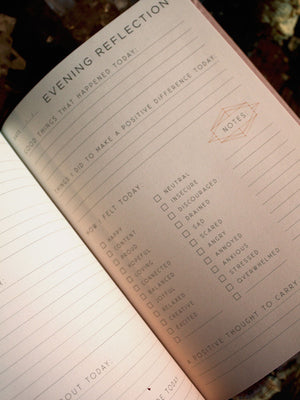 EVENING REFLECTION
GOOD THINGS THAT HAPPENED TODAY:
THINGS I DID TO MAKE A POSITIVE DIFFERENCE TODAY:
NOTES:
HOW I FELT TODAY:
HAPPY
CONTENT
PROUD
HOPEFUL
LOVING
CONNECTED
BALANCED
JOYFUL
RELAXED
CREATIVE
EXCITED
NEUTRAL
INSECURE
DISCOURAGED
DRAINED
SAD
SCARED
ANGRY
ANNOYED
ANXIOUS
STRESSED
OVERWHELMED
A POSITIVE THOUGHT TO CARRY
OUT TODAY:
BE TODAY: